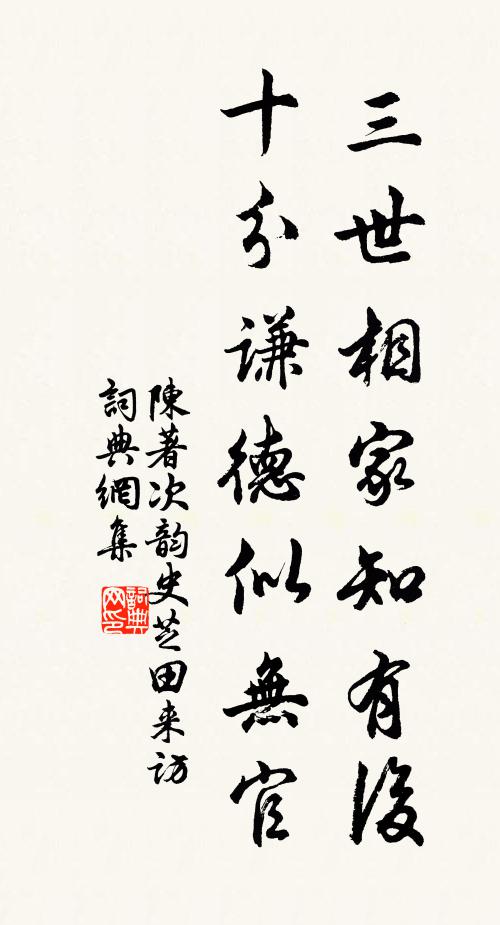 三世相家知有後
十分謙德似無官
陳著次韵史芝田来訪
詞典網集
詞典网印